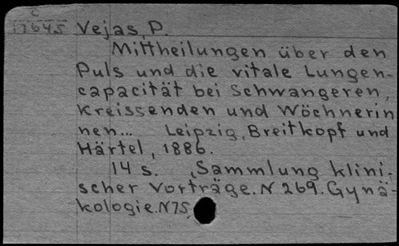 C
17645 Vejas, P.
Mittheilungen über den
Puls und die vitale Lungen-
capacität bei Schwangeren,
Kreissenden und Wöchnerin
nen... Leipzig, Breitkopf und
Härtel, 1886.
14 s. (Sammlung klini-
scher Vorträge. N 269. Gynä-
kologie. N 75.